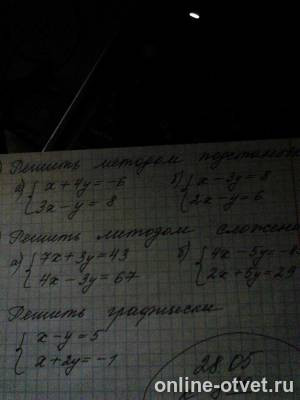 Решить методом подстановки
а) { x + 4y = -6   б) { x - 3y = 8
3x - y = 8   2x - y = 6
Решить методом сложения
а) { 7x + 3y = 43   б) { 4x - 5y =
4x - 3y = 67   2x + 5y = 25
Решить графически
{ x - y = 5
x + 2y = -1
28.05
online-otvet.ru